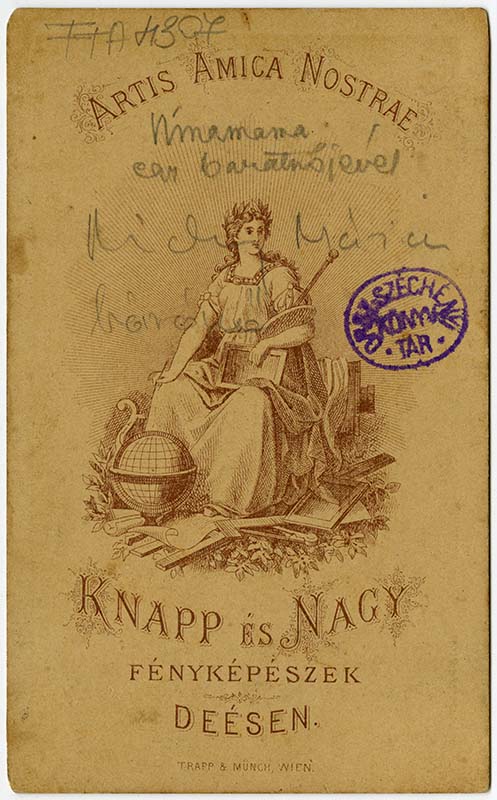 FTA 4397
ARTIS AMICA NOSTRAE
Ninamama
egy barátnőjével
Mária
ORSZ. SZÉCHÉNYI
KÖNYV
TÁR
KNAPP ÉS NAGY
FÉNYKÉPÉSZEK
DEÉSEN.
TRAPP & MÜNCH, WIEN.